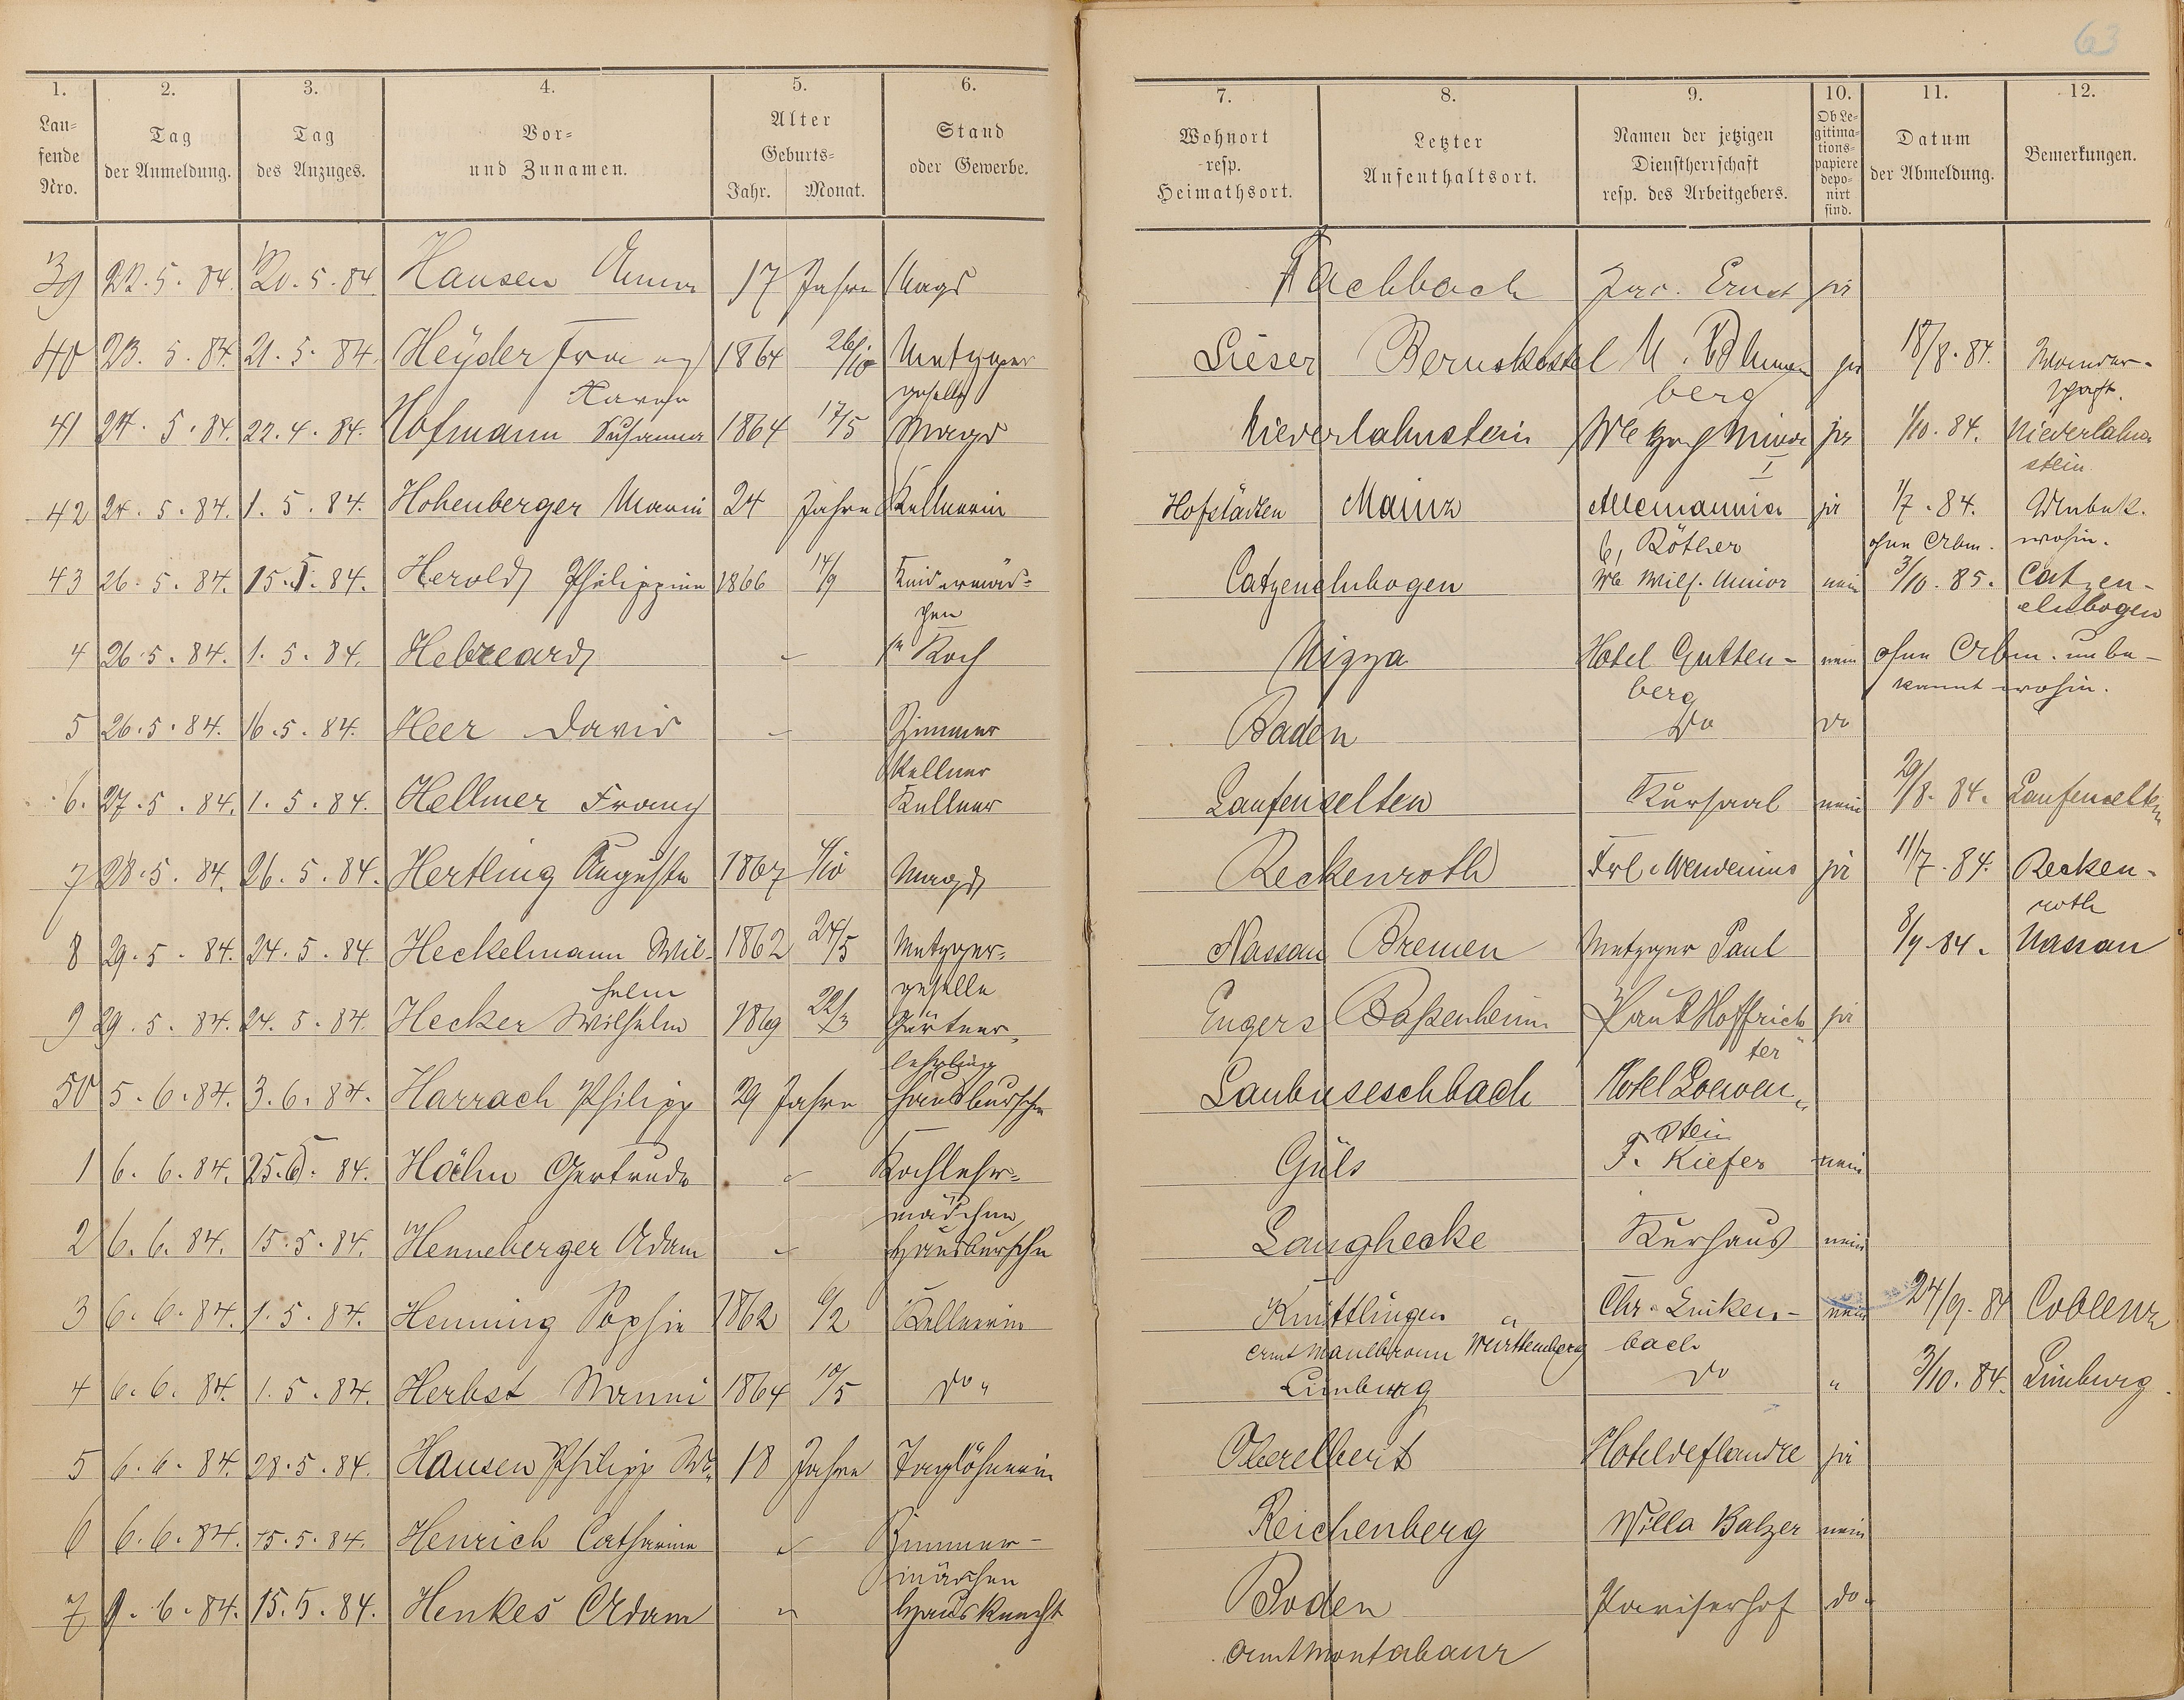 63
1. 2. 3. 4. 5. 6. 7. 8. 9. 10. 11. 12.
Lau-
fende
Nro.
Tag
der Anmeldung.
Tag
des Anzuges.
Vor-
und Zunamen.
Alter
Geburts-
Jahr. Monat.
Stand
oder Gewerbe.
Wohnort
resp.
Heimathsort.
Letzter
Aufenthaltsort.
Namen der jetzigen
Dienstherrschaft
resp. des Arbeitgebers.
Ob Le-
gitima-
tions-
papiere
depo-
nirt
sind.
Datum
der Abmeldung.
Bemerkungen.
39 22.5.84. 20.5.84 Hausen Anna 17 Jahre Magd Fachbach Jac. Ernst ja
40 23.5.84. 21.5.84. Heyder Franz 1864 26/10 Metzger Lieser Bernkastel M. Blumen ja 18/8.84. Wander-
geselle berg schaft.
41 24.5.84. 22.4.84. Hofmann Susanna 1864 17/5 Magd Niederlahnstein We Minor ja 1/10.84. Niederlahn-
I stein
42 24.5.84. 1.5.84. Hohenberger Marie 24 Jahre Kellnerin Hofstädten Mainz Allemannia ja 1/7.84. Unbek.
b, Röther ohne Abm. wohin.
43 26.5.84. 15.5.84. Herold Philippine 1866 14/9 Kindermäd- Catzenelnbogen We Wilh. Minor nein 3/10.85. Catzen-
chen elnbogen
4 26.5.84. 1.5.84. Hebreard " Koch Nizza Hotel Gutten- nein ohne Abm. unbe-
berg kannt wohin.
5 26.5.84. 16.5.84. Heer David " Zimmer Baden do do
Kellner
6. 27.5.84. 1.5.84. Hellmer Franz Kellner Laufenselten Kursaal nein 29/8.84. Laufenselten
7 28.5.84. 26.5.84. Hertling Auguste 1867 4/10 Magd Reckenroth Frl. ja 11/7.84. Recken-
roth
8 29.5.84. 24.5.84. Heckelmann Wil- 1862 24/5 Metzger- Nassau Bremen Metzger Paul 8/9.84. Nassau
helm geselle
9 29.5.84. 24.5.84. Hecker Wilhelm 1869 22/3 Gärtner- Engers Baßenheim Paul Hoffrich ja
lehrling ter
50 5.6.84. 3.6.84. Harrach Philipp 29 Jahre Hausbursche Laubuseschbach Hotel Loewen-
stein
1 6.6.84. 25.5.84. Höhn Gertrude " Kochlehr- Güls F. Kiefer nein
mädchen
2 6.6.84. 15.5.84. Henneberger Adam " Hausbursche Langhecke Kurhaus nein
3 6.6.84. 1.5.84. Henning Sophie 1862 6/2 Kellnerin Knittlingen " Chr. Linken- nein 24/9.84 Coblenz
Amt Maulbronn Württemberg bach
4 6.6.84. 1.5.84. Herbst Nanni 1864 10/5 do " Limburg do " 3/10.84. Limburg
5 6.6.84. 28.5.84. Hausen Philipp We. 18 Jahre Taglöhnerin Oberelbert Hotel de flandre ja
6 6.6.84. 15.5.84. Henrich Catharine " Zimmer- Reichenberg Willa Balzer nein
mädchen
7 9.6.84. 15.5.84. Henkes Adam " Hausknecht Boden Pariserhof do.
Amt Montabaur